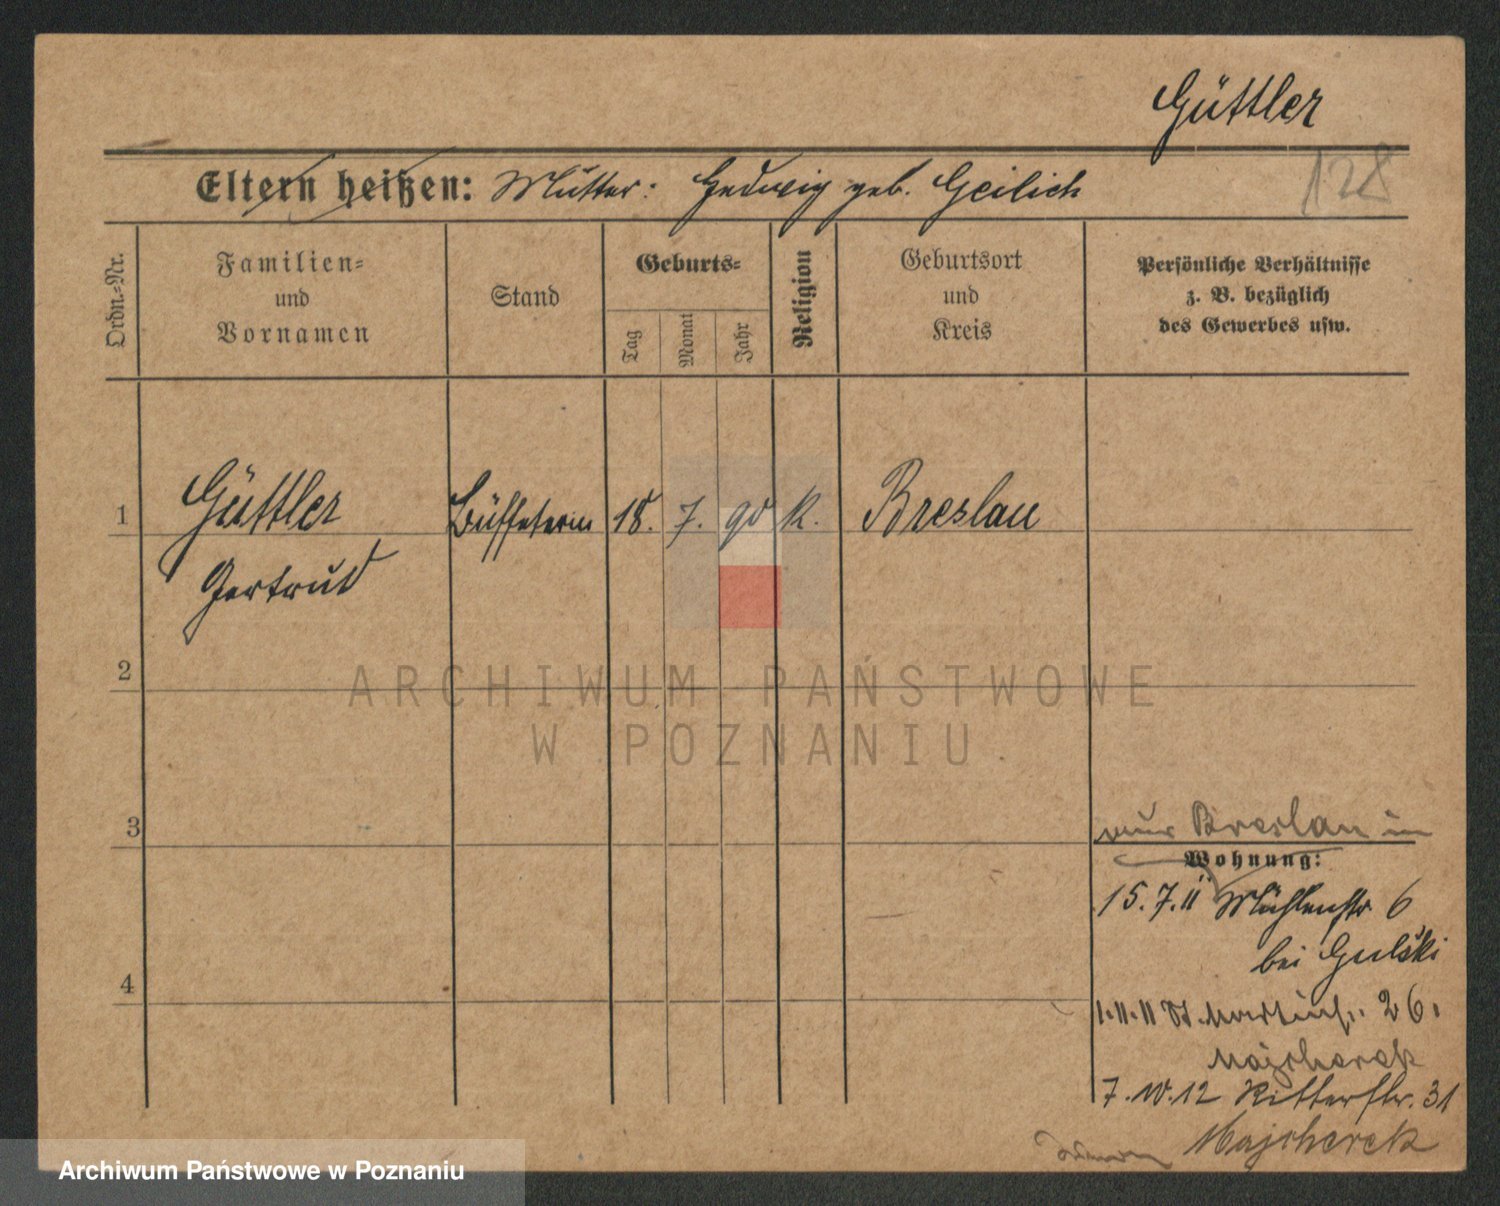 Güttler
128
Eltern heißen: Mutter: Hedwig geb. Geilich
Ordn.=Nr.
Familien=
und
Vornamen
Stand
Geburts=
Tag
Monat
Jahr
Religion
Geburtsort
und
Kreis
Persönliche Verhältnisse
z. B. bezüglich
des Gewerbes usw.
1 Güttler Büffeterin 18. 7. 90 k. Breslau
Gertrud
2
ARCHIWUM PAŃSTWOWE
W POZNANIU
3
Breslau in
Wohnung:
15.7.11 Mühlenstr 6
bei Gulski
4
1.11.11 St. Martinstr. 26.
Majcherek
7.10.12 Ritterstr. 31
Majcherek
Archiwum Państwowe w Poznaniu